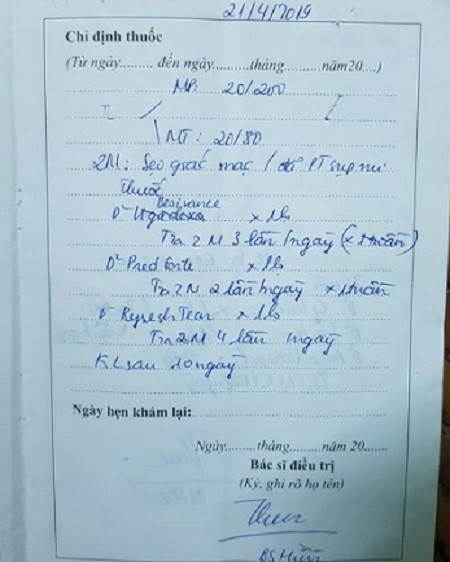 21/4/2019
Chỉ định thuốc
(Từ ngày......... đến ngày..........tháng..........năm20....)
MP: 20/200
TL
MT: 20/80
2M: Sẹo giác mạc / đã PT sụp mi
Thuốc
Besivance
D² x 1lọ
Tra 2M 3 lần/ngày (x 1 tuần)
D² Pred Forte x 1lọ
Tra 2M 2 lần/ngày x 1 tuần
D² Refresh Tear x 1lọ
Tra 2M 4 lần ngày
KL sau 10 ngày
Ngày hẹn khám lại:
Ngày........tháng.........năm 20......
Bác sĩ điều trị
(Ký, ghi rõ họ tên)
BS